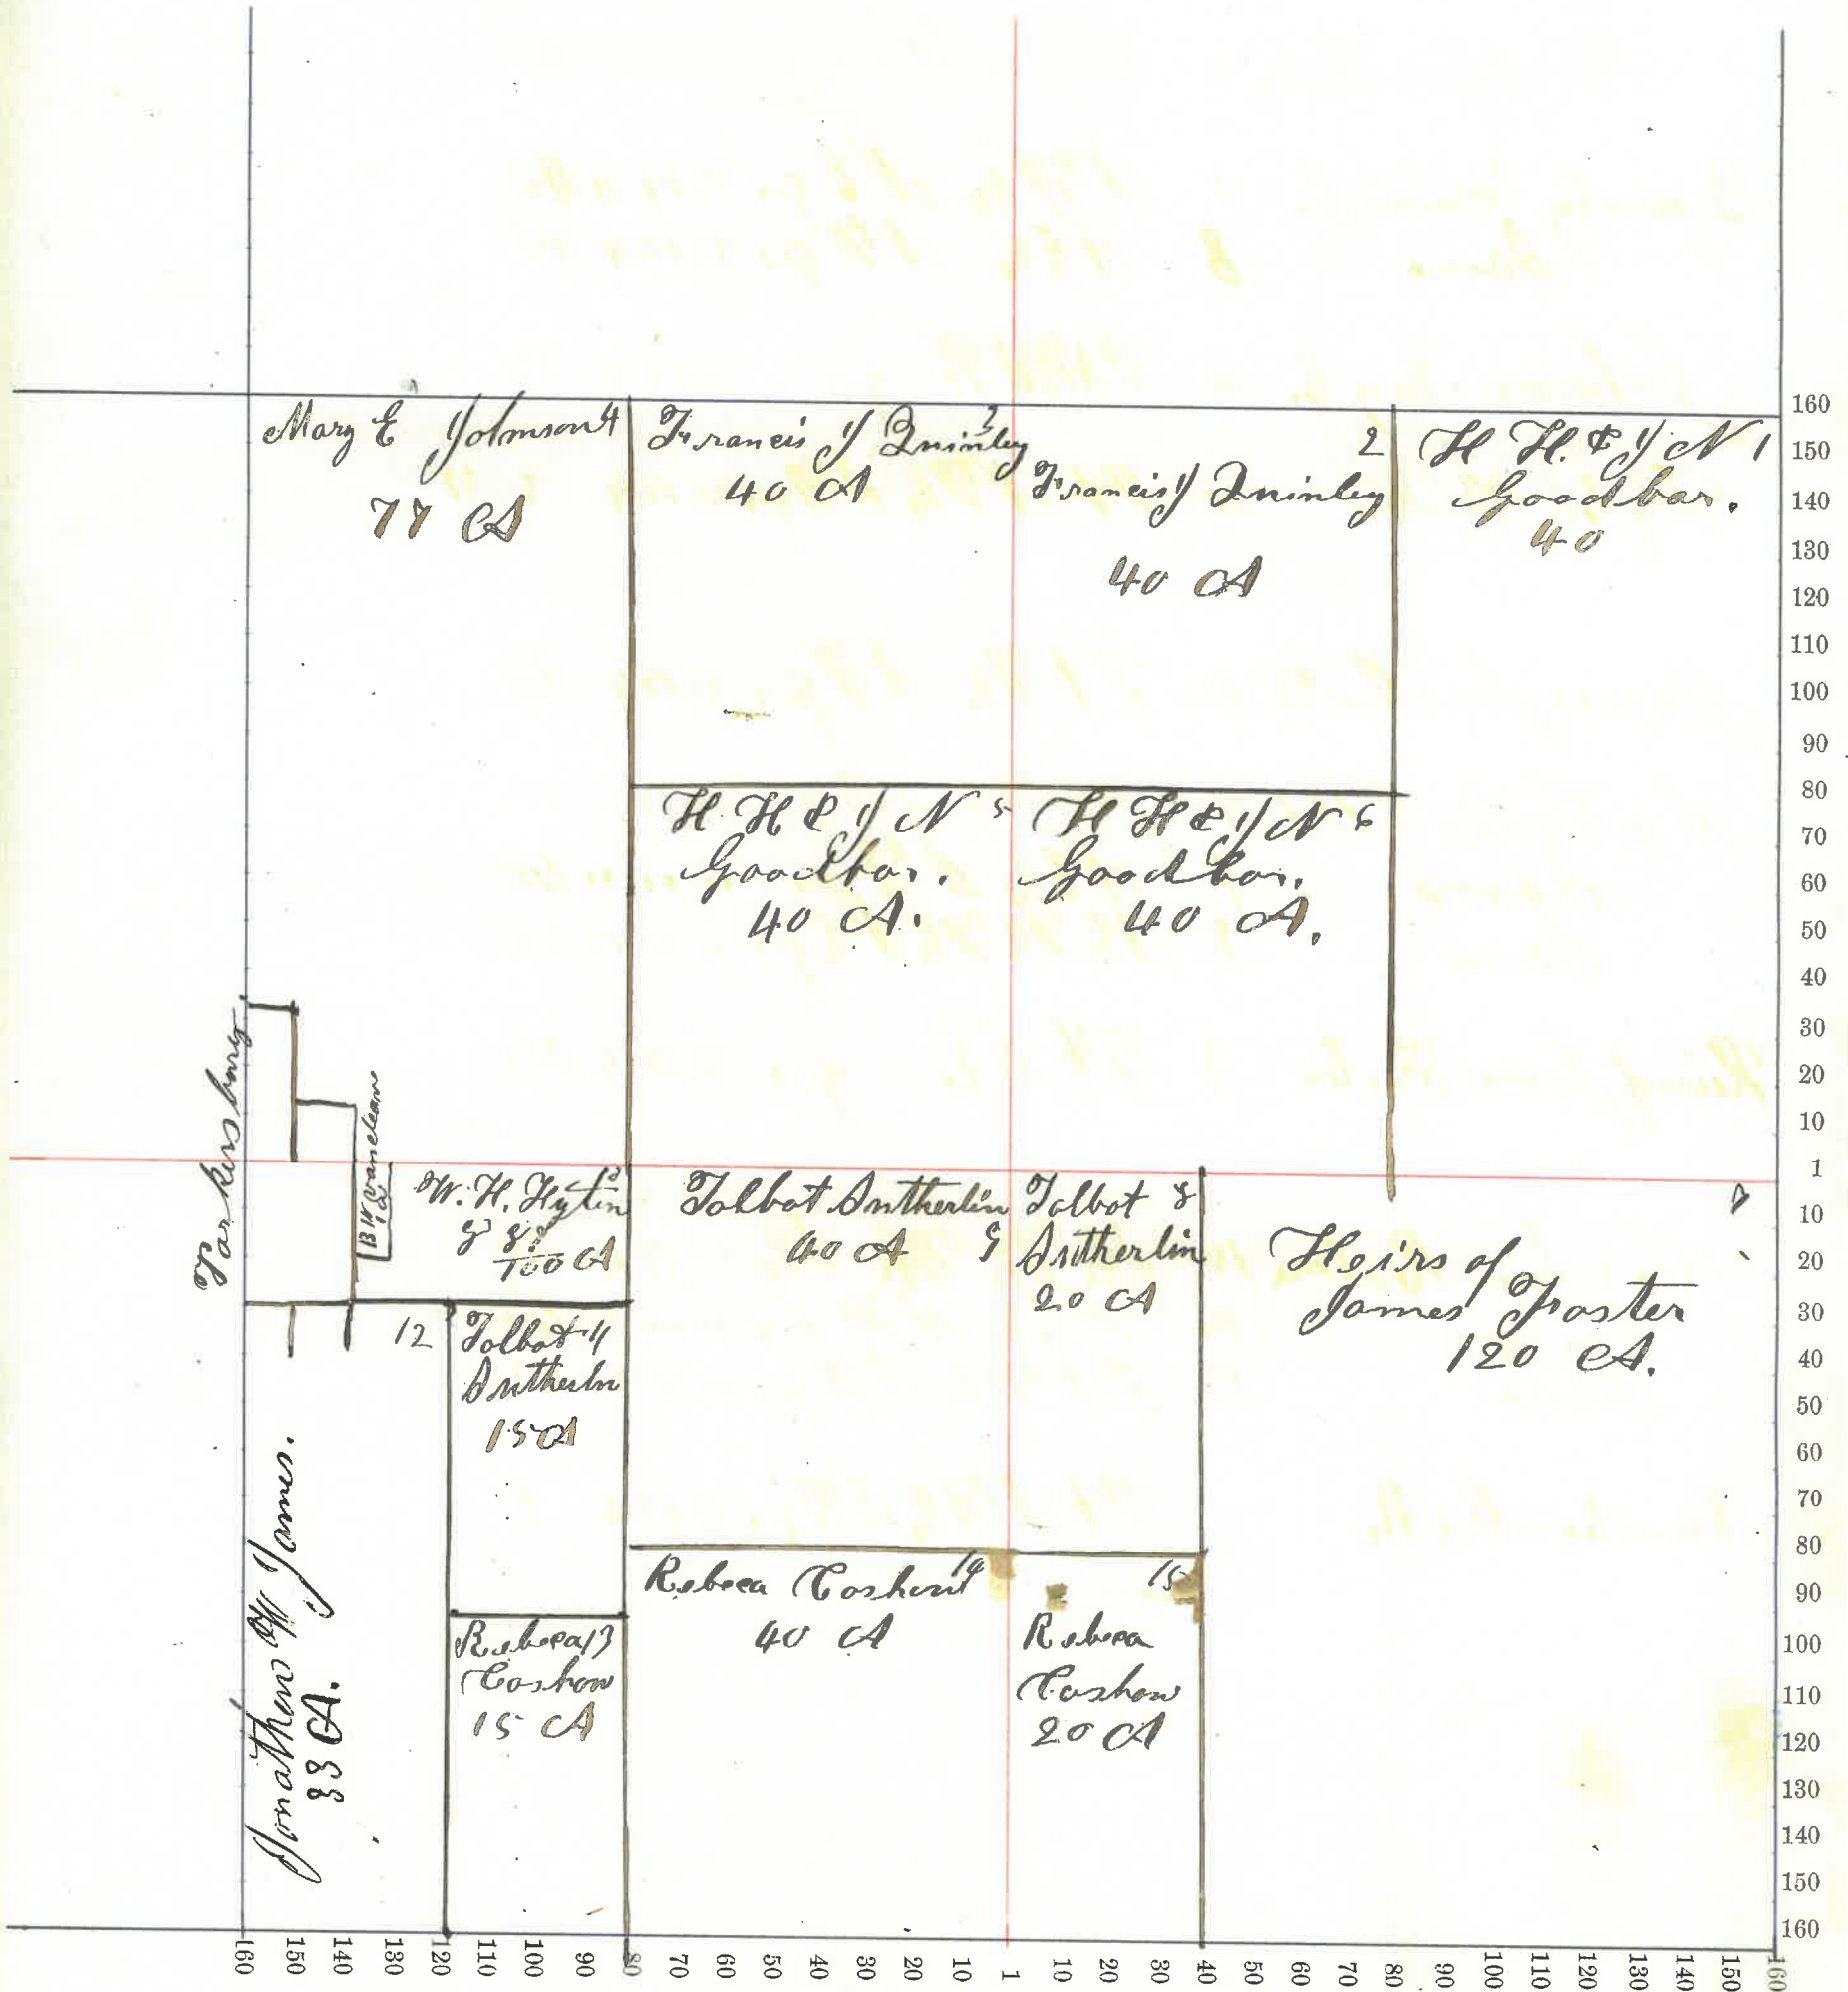 Mary E Johnson 4
77 A
Francis J Quinley 3
40 A
2
Francis J Quinley
40 A
H H. & J N 1
Goodbar.
40
H. H & J N 5
Goodbar.
40 A.
H H & J N 6
Goodbar.
40 A.
Parkersburg
B W Vancleave
10
W. H. Hytin
100 A
Talbot Sutherlin
40 A 9
Talbot 8
Sutherlin
20 A
7
Heirs of
James Foster
120 A.
12
Talbot 11
Sutherln
15 A
Jonathan W James.
33 A.
Rebeca 13
Coshow
15 A
Rebeca Coshow 14
40 A
15
Rebeca
Coshow
20 A
160
150
140
130
120
110
100
90
80
70
60
50
40
30
20
10
1
10
20
30
40
50
60
70
80
90
100
110
120
130
140
150
160
160 150 140 130 120 110 100 90 80 70 60 50 40 30 20 10 1 10 20 30 40 50 60 70 80 90 100 110 120 130 140 150 160